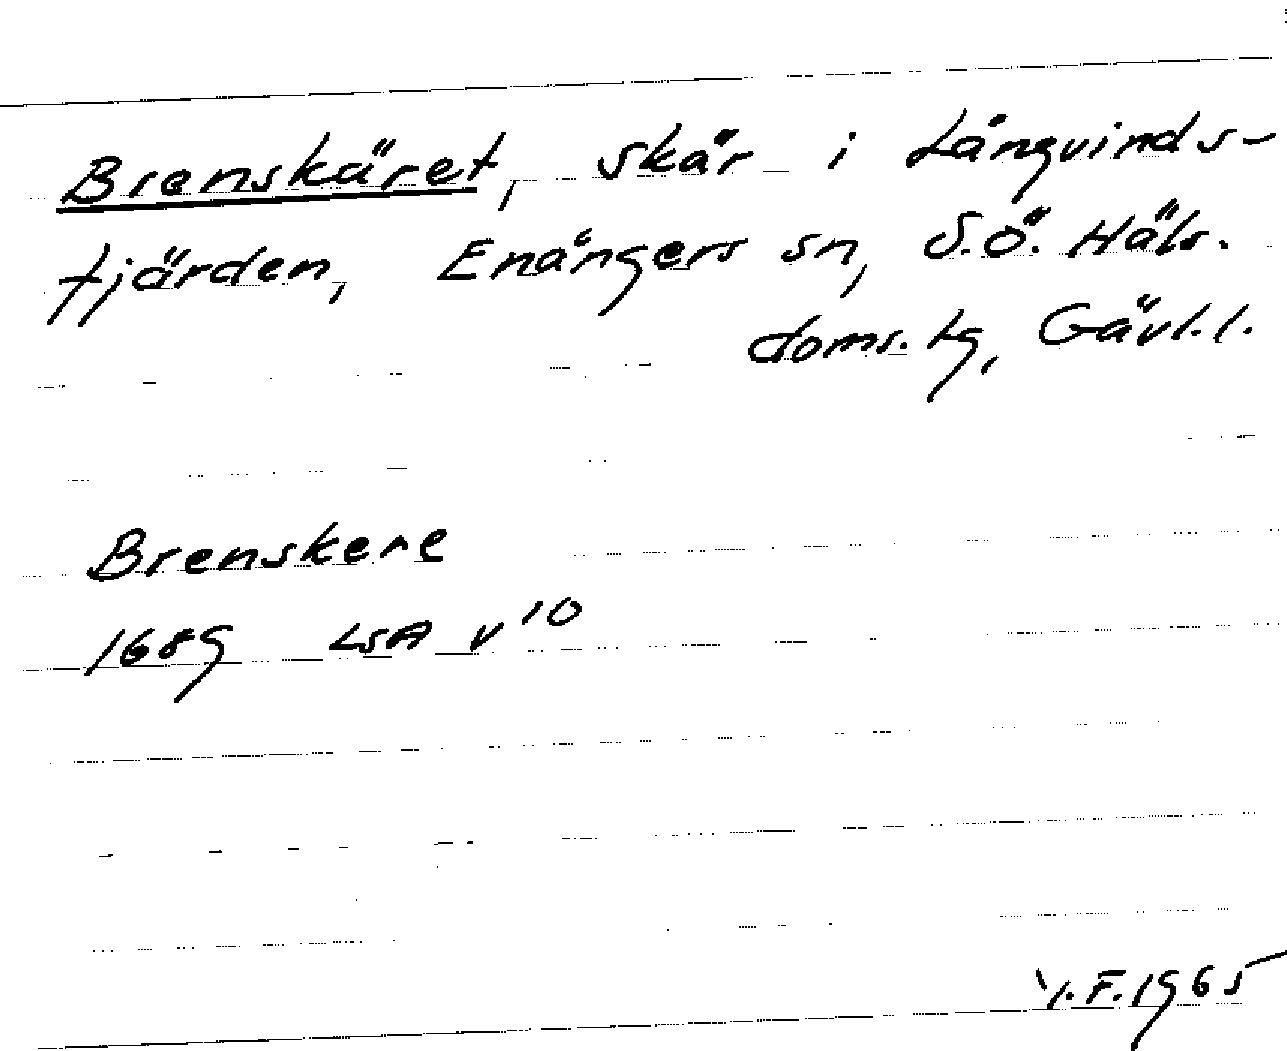 Brenskäret, skär i Långvinds-
fjärden, Enångers sn, S.Ö. Häls.
doms. tg, Gävl.l.
Brenskere
1689 LSA V¹⁰
Y.F.1965